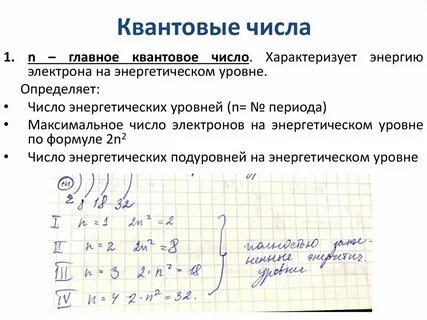 Квантовые числа
1. n – главное квантовое число. Характеризует энергию
электрона на энергетическом уровне.
Определяет:
• Число энергетических уровней (n= № периода)
• Максимальное число электронов на энергетическом уровне
по формуле 2n²
• Число энергетических подуровней на энергетическом уровне
+n ) ) ) )
2 8 18 32
I n = 1 2n² = 2
II n = 2 2n² = 8
III n = 3 2·n² = 18
IV n = 4 2·n² = 32.
полностью
энергетич.
уровни